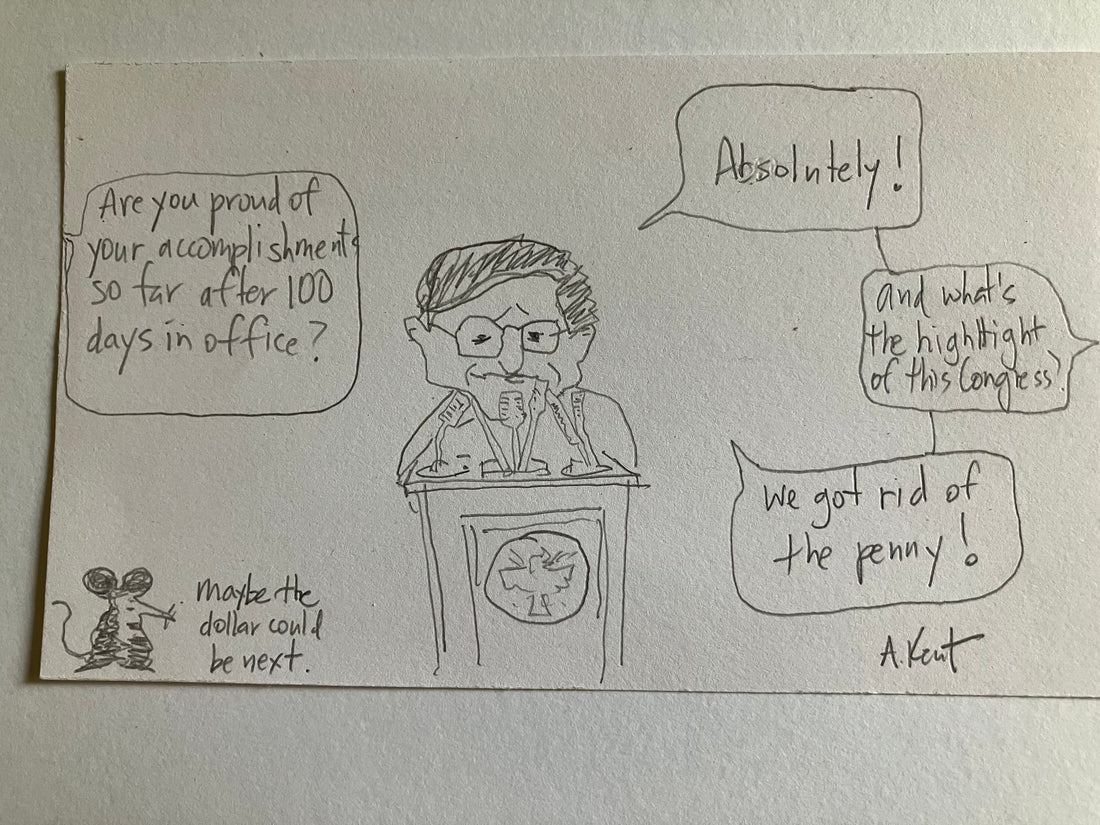 Are you proud of
your accomplishments
so far after 100
days in office?
Absolutely!
and what's
the hightlight
of this Congress?
We got rid of
the penny!
maybe the
dollar could
be next.
A. Kent